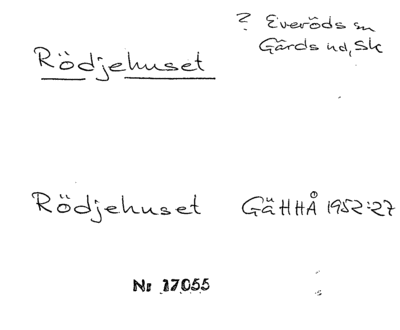 ? Everöds sn
Rödjehuset Gärds hd, Sk
Rödjehuset GäHHÅ 1952:27
Nr 17055